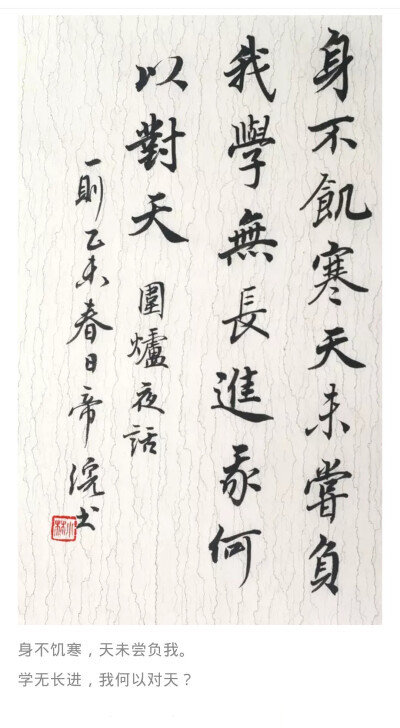 身不飢寒天未嘗負
我學無長進我何
以對天 圍爐夜話
一則乙未春日帝浣书
身不饥寒，天未尝负我。
学无长进，我何以对天？